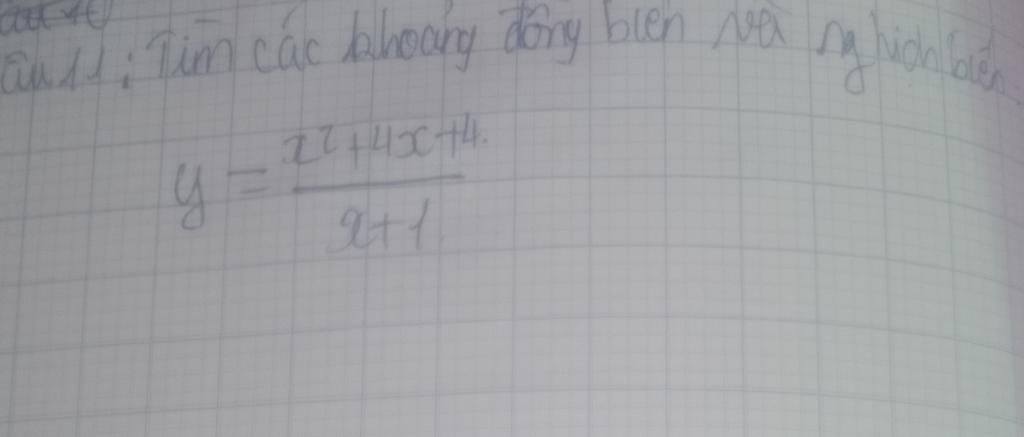 âu 11: Tìm các khoảng đồng biến và nghịch biến.
y = x²+4x+4.
x+1